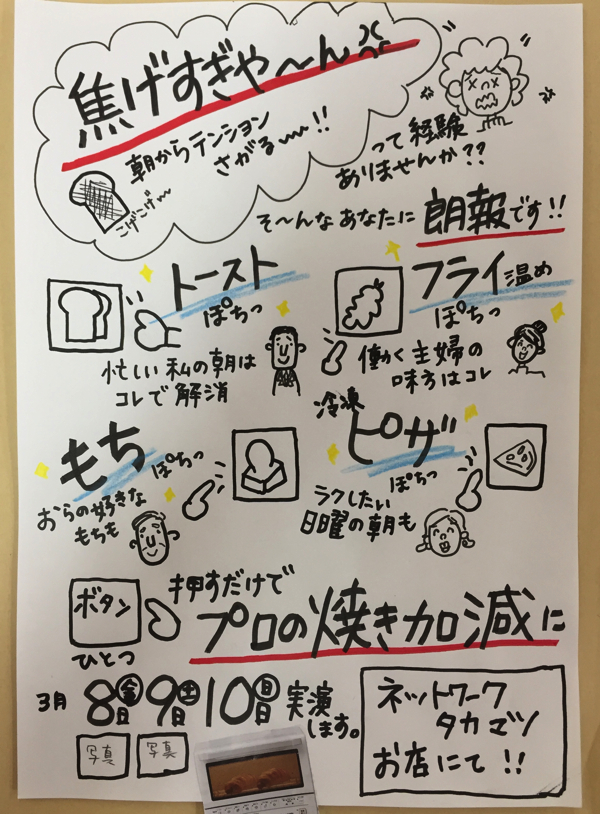 焦げすぎや〜ん
朝からテンション
さがる〜!!
こげこげ〜
って経験
ありませんか??
そ〜んなあなたに朗報です!!
トースト
ぽちっ
忙しい私の朝は
コレで解消
フライ温め
ぽちっ
働く主婦の
味方はコレ
もち
ぽちっ
おらの好きな
もちも
冷凍
ピザ
ぽちっ
ラクしたい
日曜の朝も
ボタン
ひとつ
押すだけで
プロの焼き加減に
3月8日金9日土10日日実演
します。
写真
写真
ネットワーク
タカマツ
お店にて!!